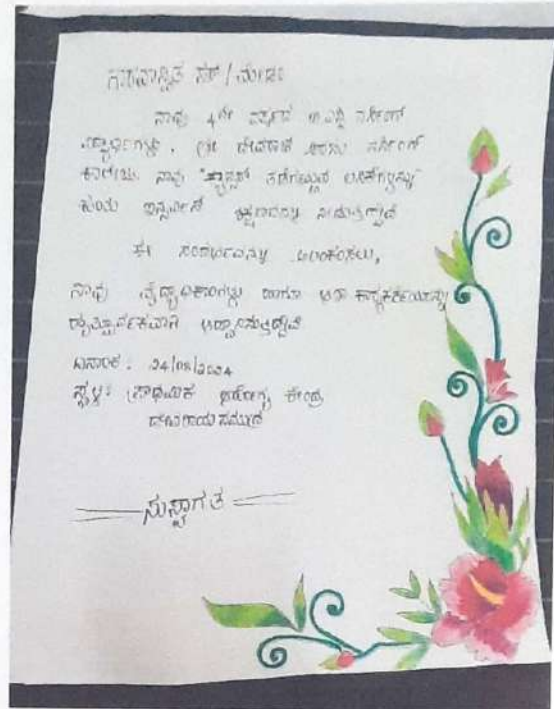 ಗೌರವಾನ್ವಿತ ಸರ್ / ಮೇಡಂ
ನಾವು 4ನೇ ವರ್ಷದ ಬಿ.ಎಸ್ಸಿ ನರ್ಸಿಂಗ್
ವಿದ್ಯಾರ್ಥಿಗಳು, ಶ್ರೀ ದೇವರಾಜ ಅರಸು ನರ್ಸಿಂಗ್
ಕಾಲೇಜು ನಾವು "ಕ್ಯಾನ್ಸರ್ ತಡೆಗಟ್ಟುವ
ಶಿಕ್ಷಣವನ್ನು ನೀಡುತ್ತಿದ್ದೇವೆ
ಈ ಸಂದರ್ಭವನ್ನು ಅಲಂಕರಿಸಲು,
ನಾವು ವೈದ್ಯಾಧಿಕಾರಿಗಳು ಹಾಗೂ ಆಶಾ ಕಾರ್ಯಕರ್ತೆಯರನ್ನು
ಹೃತ್ಪೂರ್ವಕವಾಗಿ ಆಹ್ವಾನಿಸುತ್ತಿದ್ದೇವೆ
ದಿನಾಂಕ : 24/08/2024
ಸ್ಥಳ : ಪ್ರಾಥಮಿಕ ಆರೋಗ್ಯ ಕೇಂದ್ರ
ದೇವರಾಯಸಮುದ್ರ
ಸುಸ್ವಾಗತ